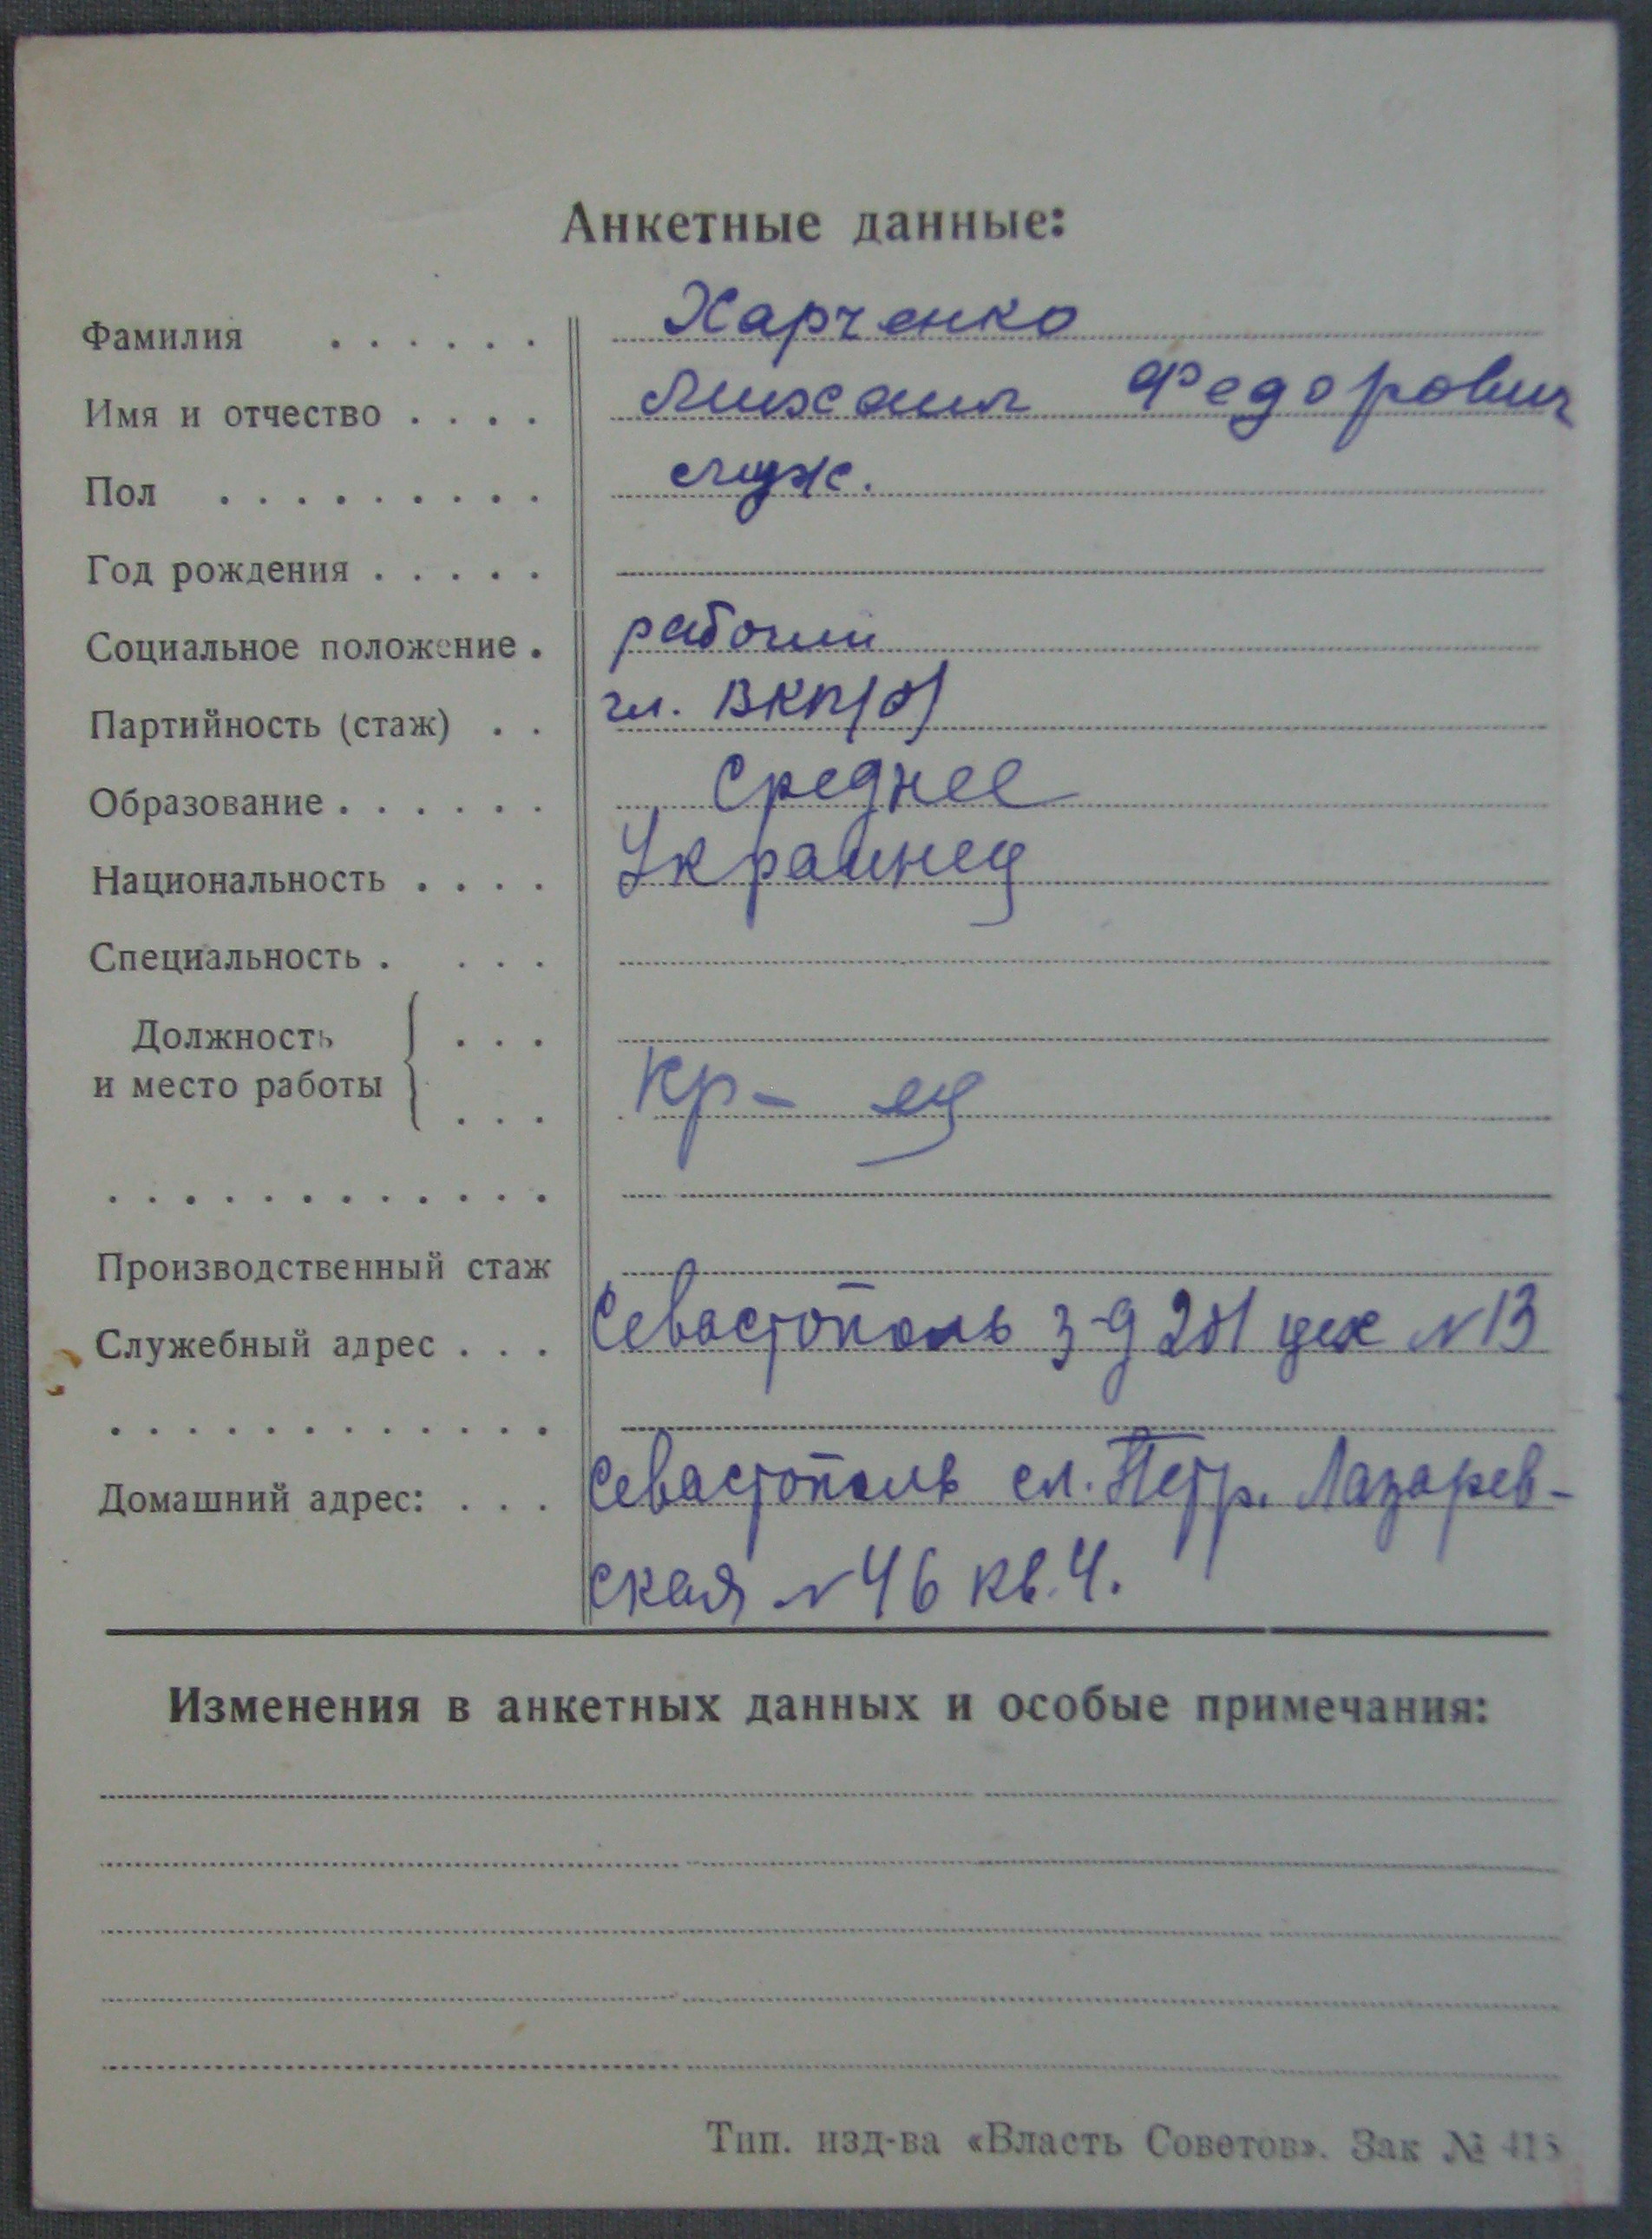 Анкетные данные:
Фамилия . . . . . . Харченко
Имя и отчество . . . . Михаил Федорович
Пол . . . . . . . . . муж.
Год рождения . . . . .
Социальное положение . рабочий
Партийность (стаж) . . чл. ВКП(б)
Образование . . . . . . Среднее
Национальность . . . . Украинец
Специальность . . . .
Должность . . .
и место работы . . . Кр-ец
Производственный стаж
Служебный адрес . . . Севастополь з-д 201 цех №13
Домашний адрес: . . . Севастополь сл. Петр. Лазарев-
ская №46 кв. 4.
Изменения в анкетных данных и особые примечания:
Тип. изд-ва «Власть Советов». Зак №